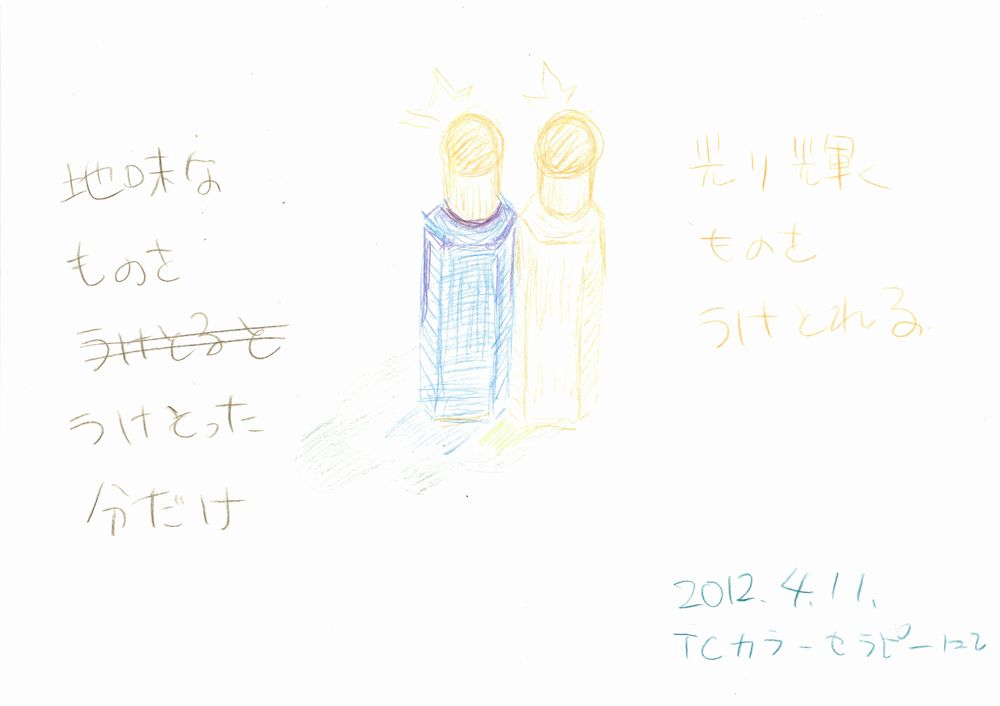 地味な
ものを
うけとると
うけとった
分だけ
光り輝く
ものを
うけとれる。
2012.4.11.
TCカラーセラピーにて